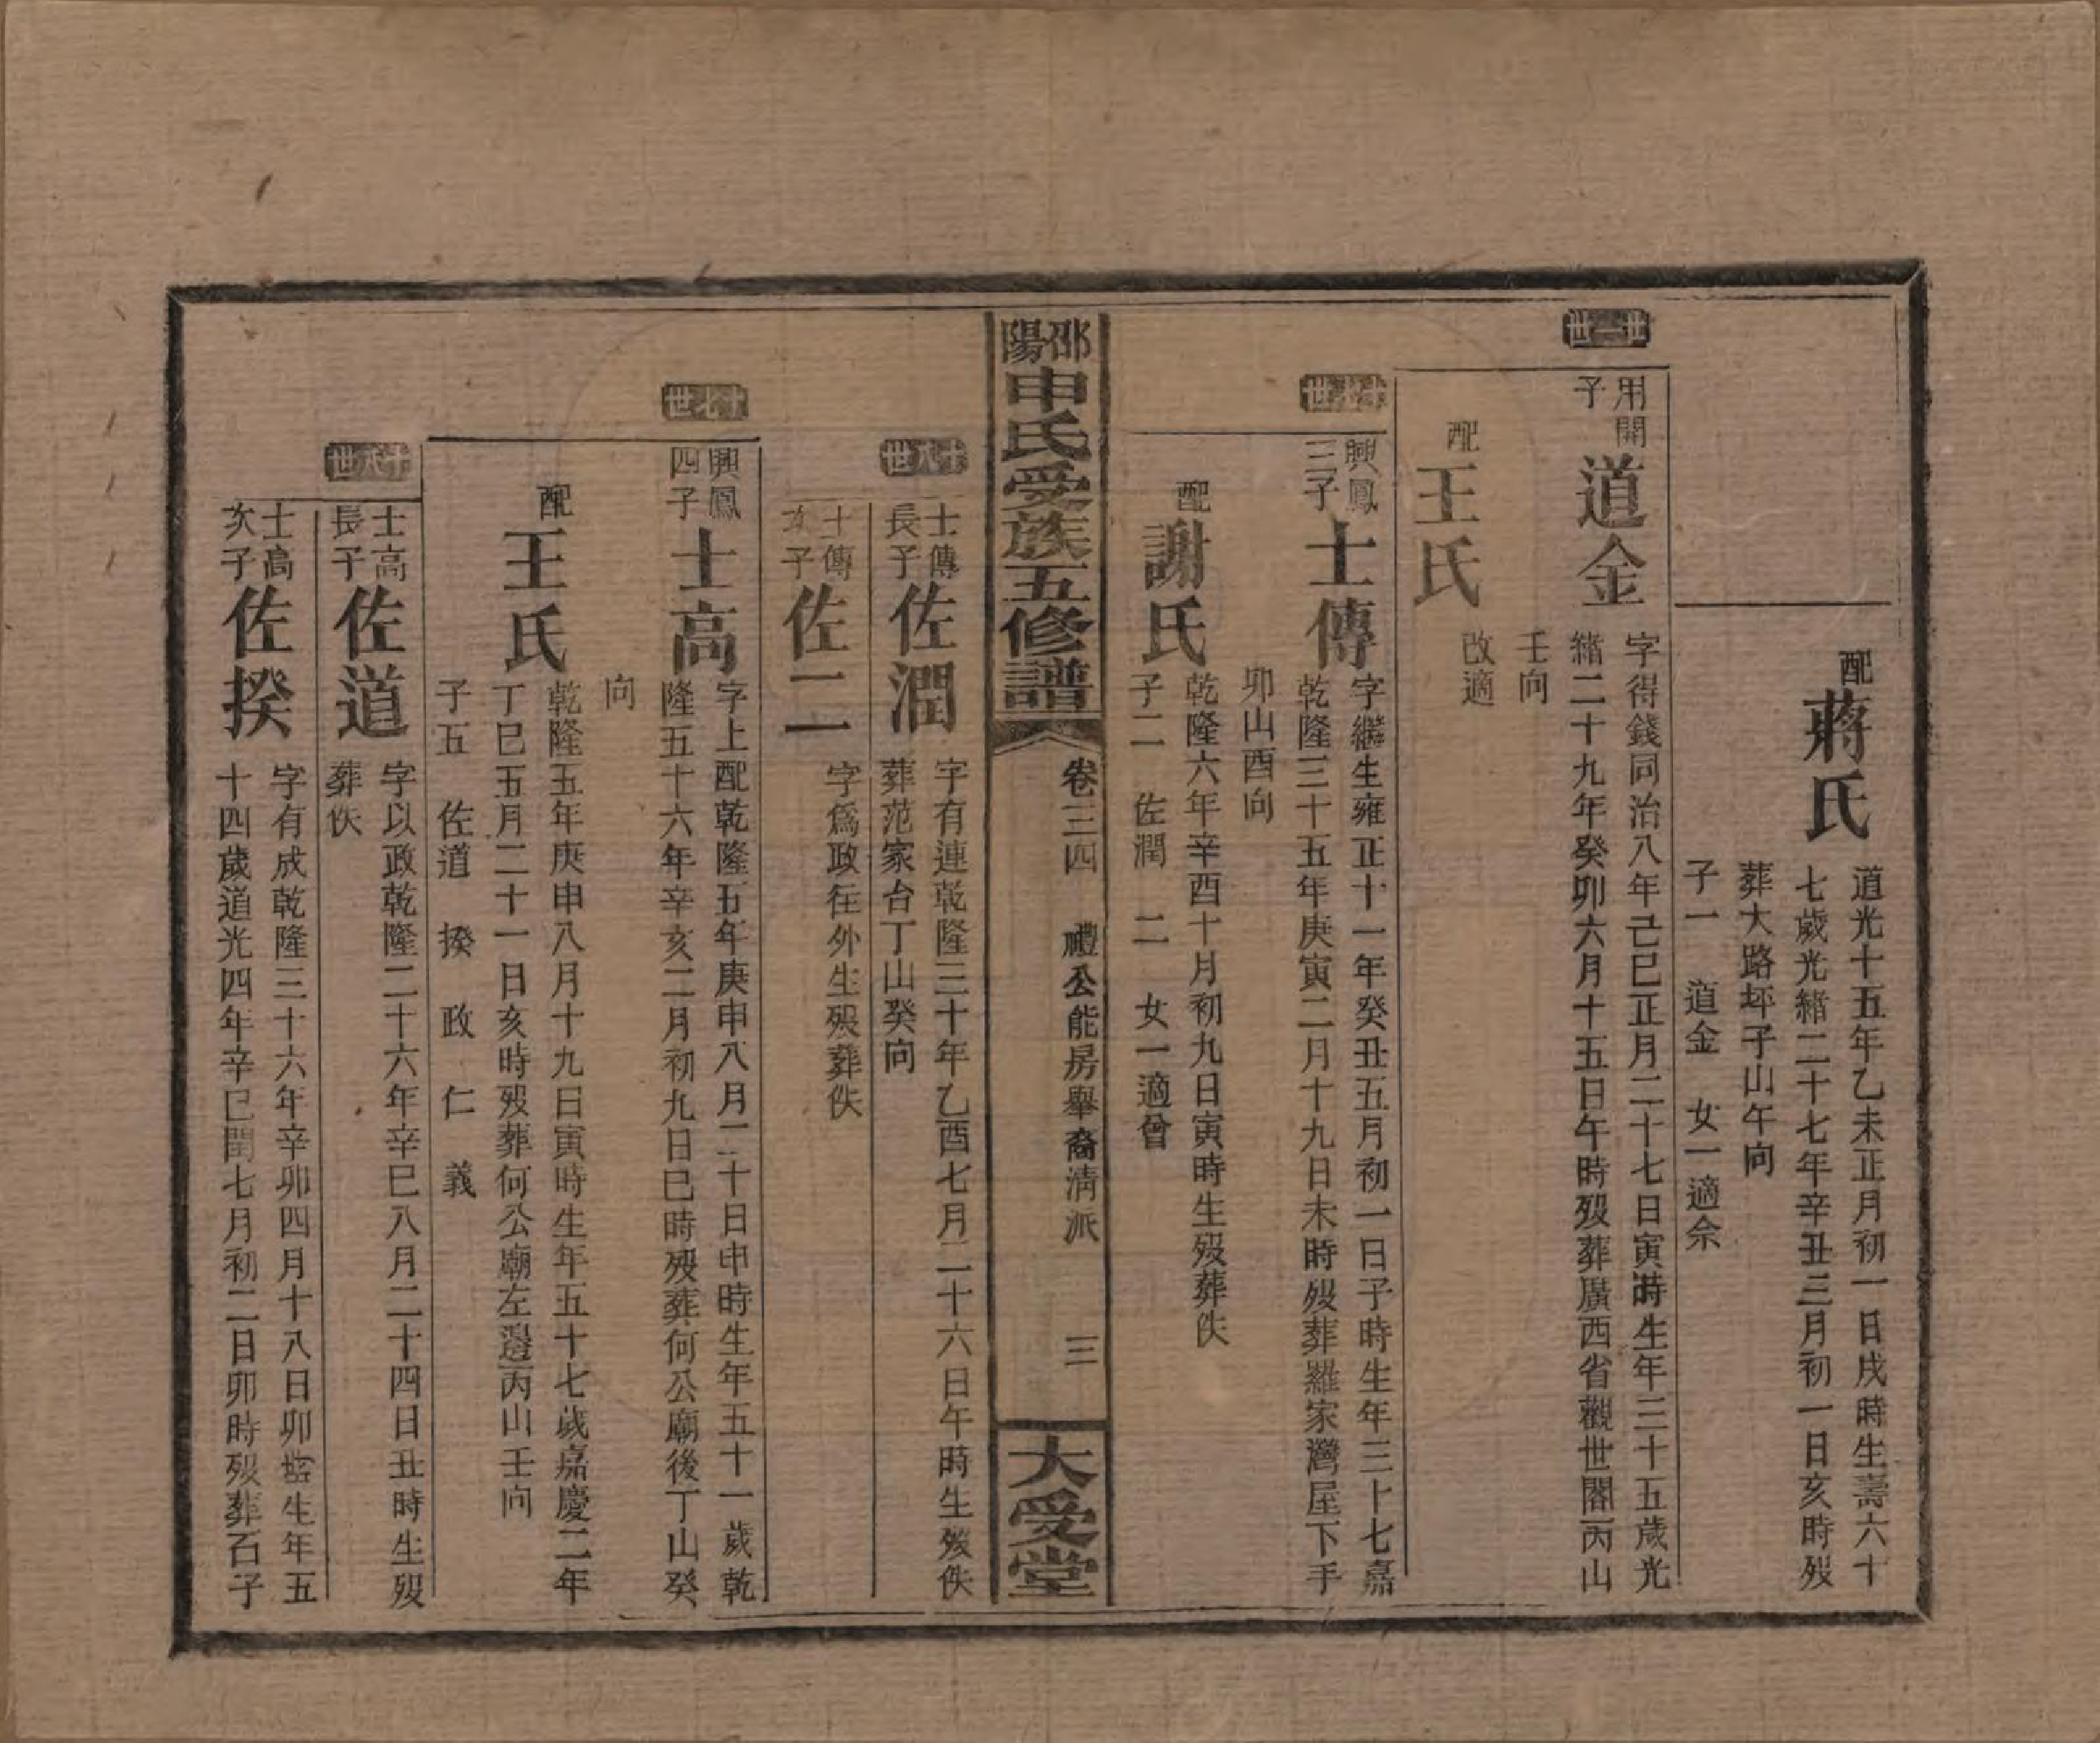 配
蔣氏
道光十五年乙未正月初一日戌時生壽六十
七歲光緒二十七年辛丑三月初一日亥時歿
葬大路坪子山午向
子一　道金　女一適佘
廿二世
用開
子
道金
字得錢同治八年己巳正月二十七日寅時生年三十五歲光
緒二十九年癸卯六月十五日午時歿葬廣西省觀世閣丙山
壬向
配
王氏
改適
十七世
興鳳
三子
士傳
字繼生雍正十一年癸丑五月初一日子時生年三十七嘉
乾隆三十五年庚寅二月十九日未時歿葬羅家灣屋下手
卯山酉向
配
謝氏
乾隆六年辛酉十月初九日寅時生歿葬佚
子二　佐潤　二　女一適曾
邵陽申氏受族五修譜
卷三四　禮公能房舉裔清派　三
大受堂
十八世
士傳
長子
佐潤
字有連乾隆三十年乙酉七月二十六日午時生歿佚
葬范家台丁山癸向
士傳
次子
佐二
字爲政往外生歿葬佚
十七世
興鳳
四子
士高
字上配乾隆五年庚申八月二十日申時生年五十一歲乾
隆五十六年辛亥二月初九日巳時歿葬何公廟後丁山癸
向
配
王氏
乾隆五年庚申八月十九日寅時生年五十七歲嘉慶二年
丁巳五月二十一日亥時歿葬何公廟左邊丙山壬向
子五　佐道　揆　政　仁　義
十八世
士高
長子
佐道
字以政乾隆二十六年辛巳八月二十四日丑時生歿
葬佚
士高
次子
佐揆
字有成乾隆三十六年辛卯四月十八日卯時生年五
十四歲道光四年辛巳閏七月初二日卯時歿葬石子